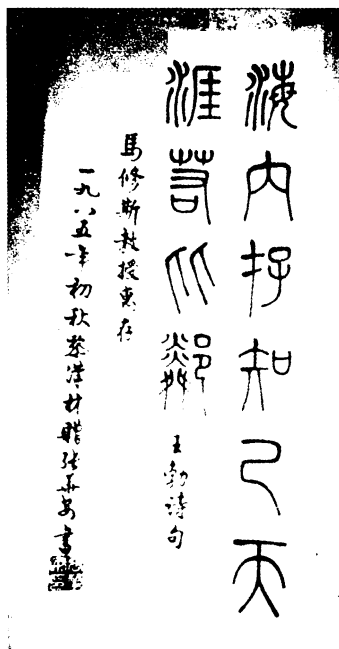 海内存知己天
涯若比鄰 王勃詩句
馬修斯教授惠存
一九八五年初秋蔡漢材贈張書